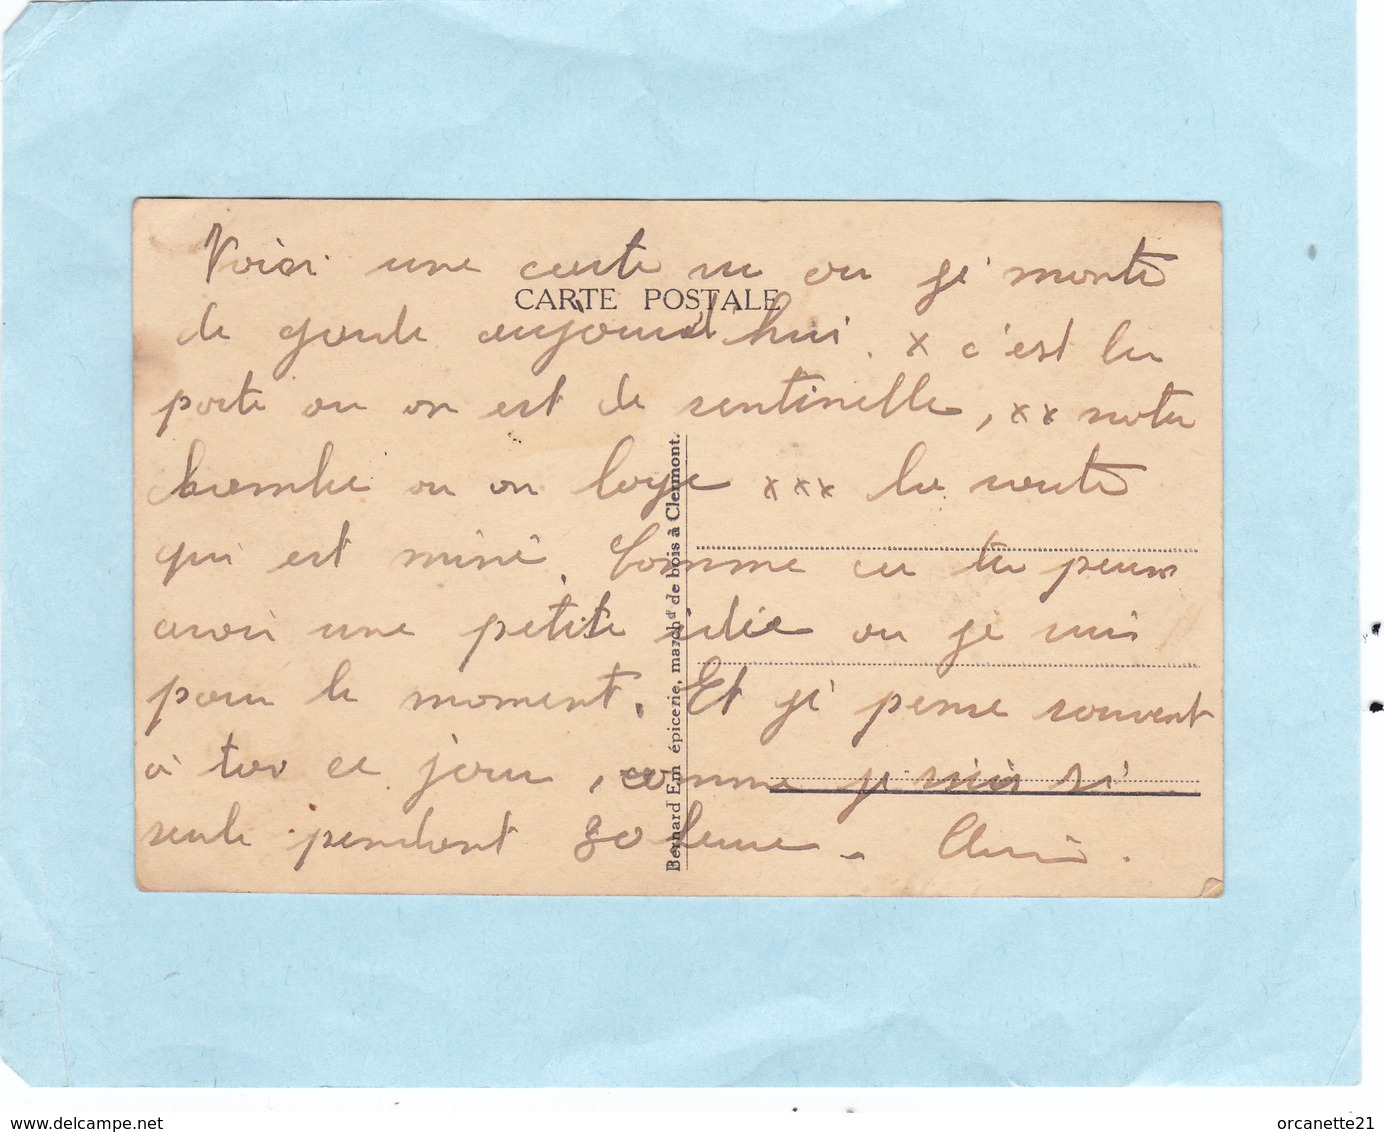 Voici une carte vu ou je monte
CARTE POSTALE
de garde aujourd'hui. x c'est la
porte ou on est de sentinelle, xx notre
chambre ou on loge xxx la route
qui est miné. Comme ca tu peux
avoir une petite idée ou je suis
pour le moment. Et je pense souvent
à toi ce jour, comme je suis si
seule pendant heure -
Bernard Em épicerie, marchd de bois à Clermont.
orcanette21